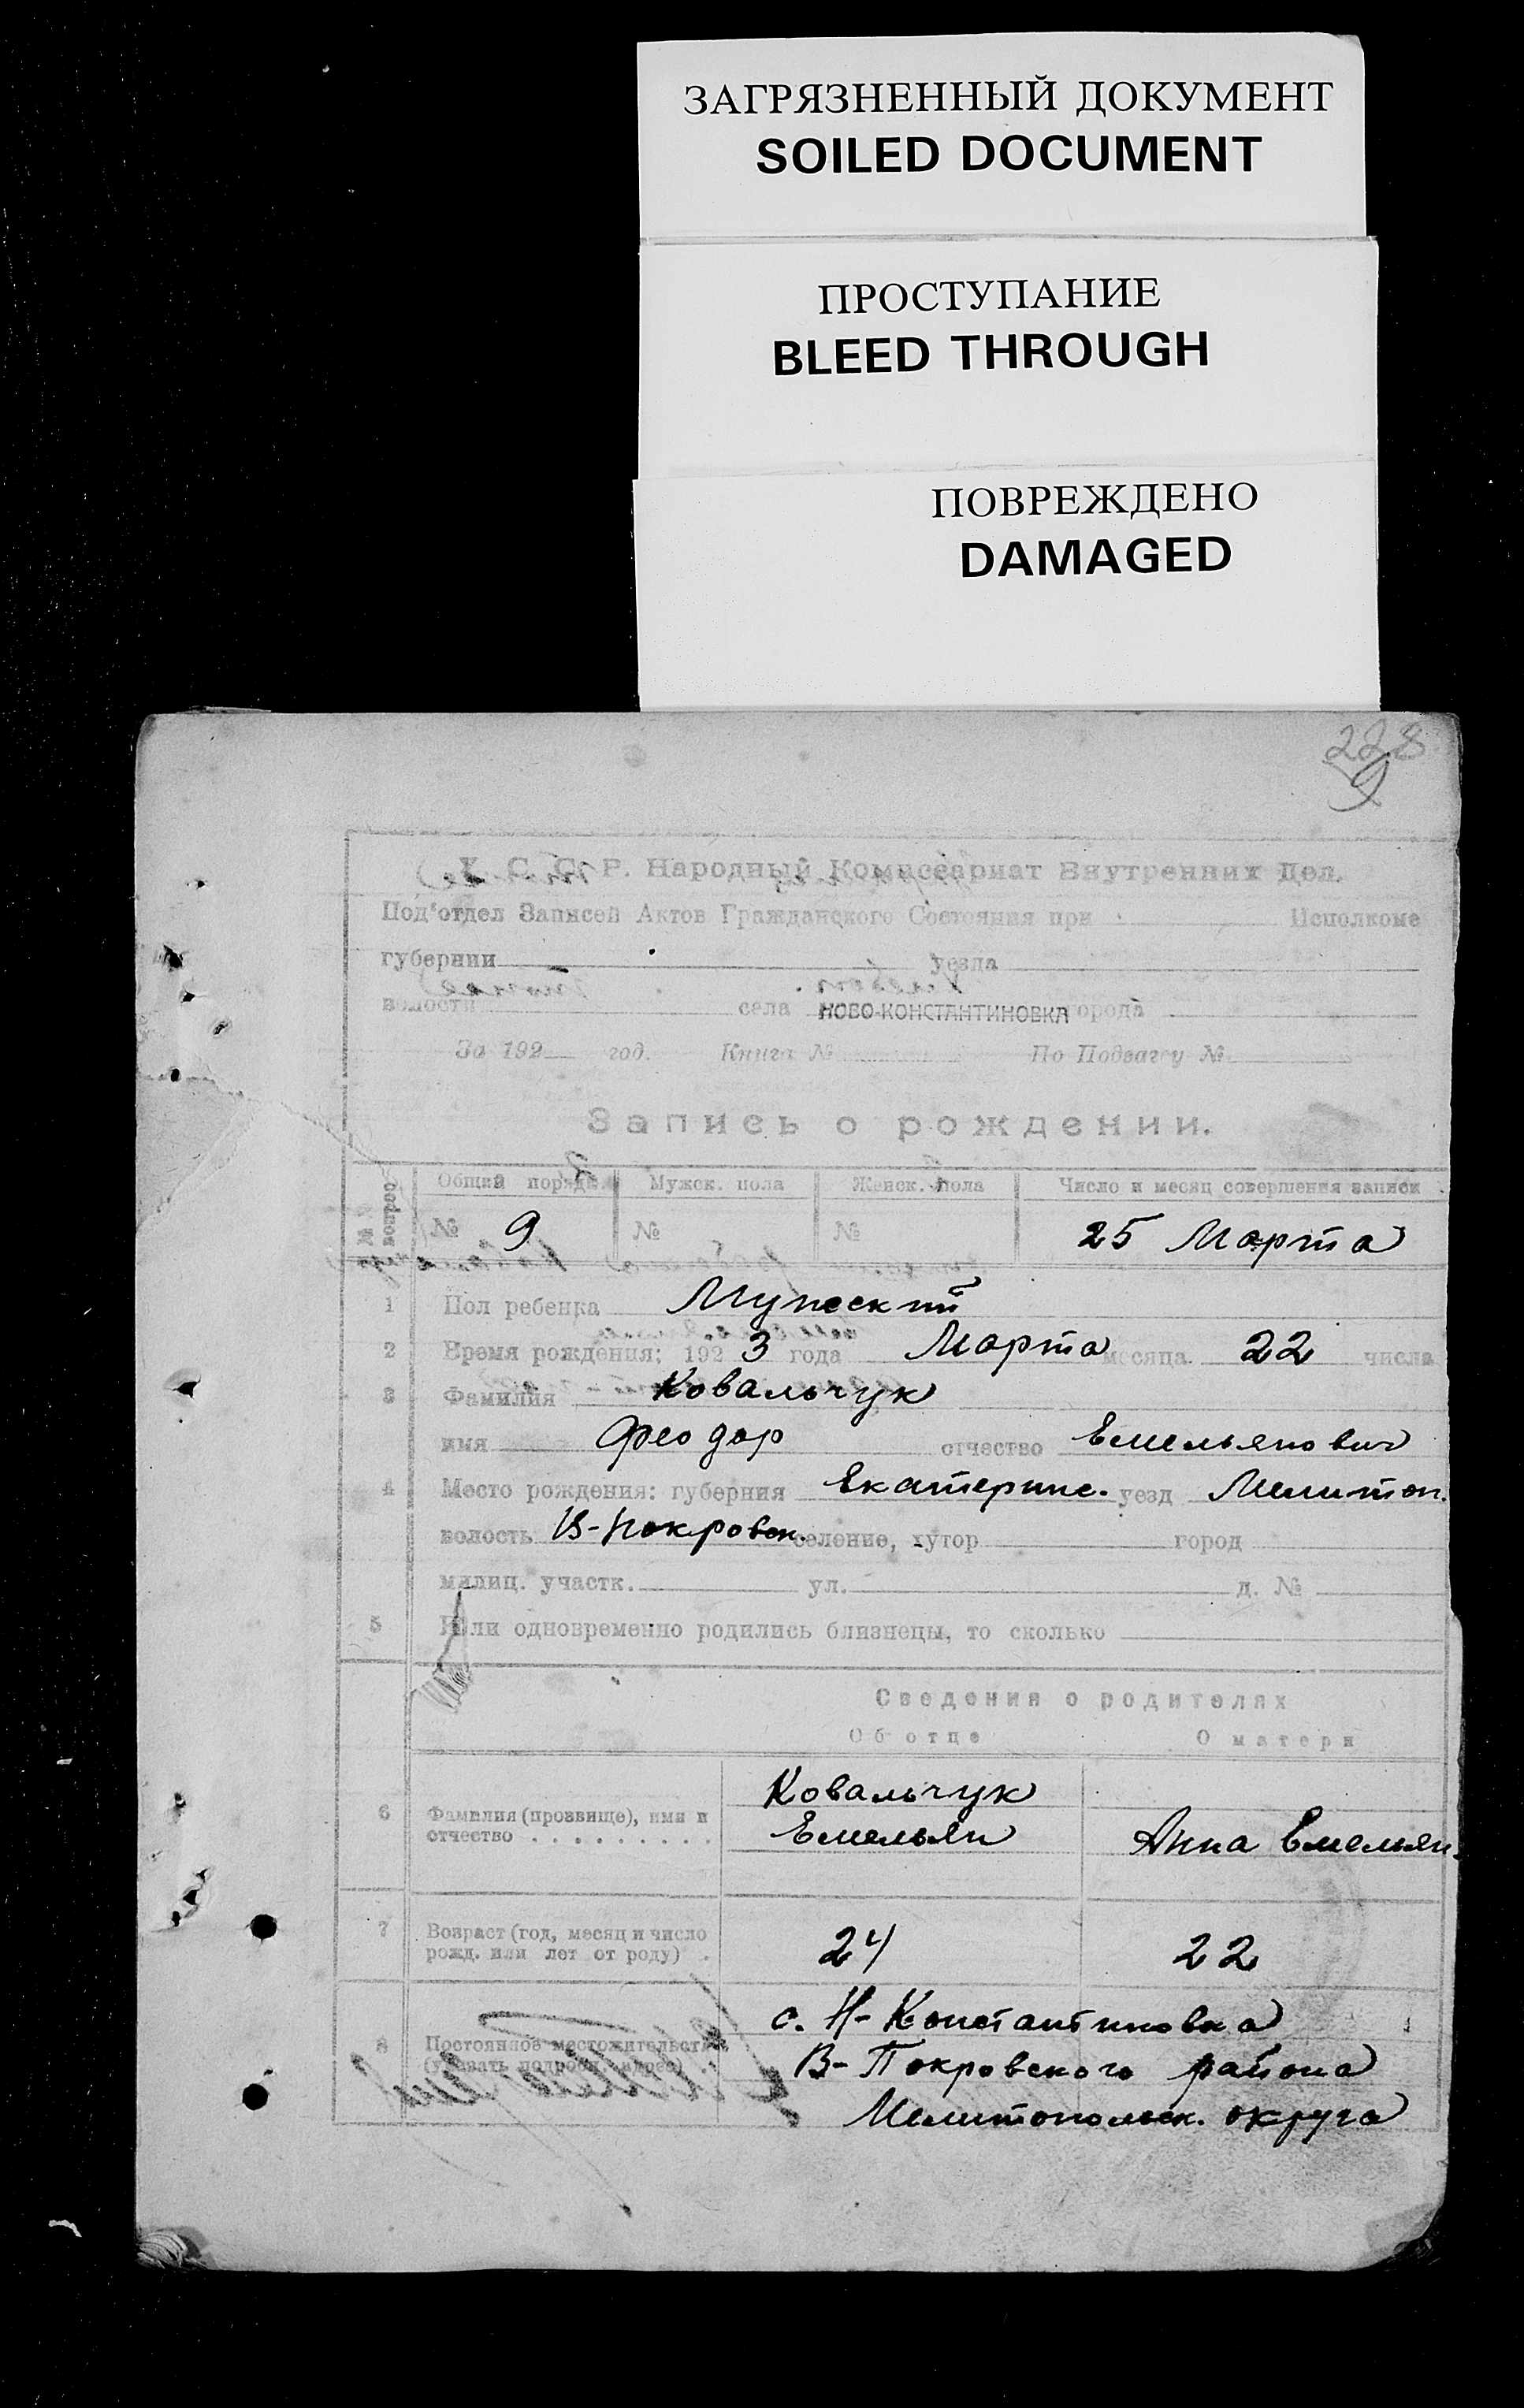 ЗАГРЯЗНЕННЫЙ ДОКУМЕНТ
SOILED DOCUMENT
ПРОСТУПАНИЕ
BLEED THROUGH
ПОВРЕЖДЕНО
DAMAGED
228
9
У. С. С. Р. Народный Комиссариат Внутренних Дел.
Под'отдел Записей Актов Гражданского Состояния при Исполкоме
губернии уезда
волости села НОВО-КОНСТАНТИНОВКА города
За 192 год. Книга № По Подвагу №
Запись о рождении.
№ вопрос. Общий порядк. Мужск. пола Женск. пола Число и месяц совершения записи
№ 9 № № 25 Марта
1 Пол ребенка Мужеский
2 Время рождения: 192 3 года Марта месяца 22 числа
3 Фамилия Ковальчук
имя Феодор отчество Емельянович
4 Место рождения: губерния Екатерин. уезд Мелитоп.
волость В-Покровск. селение, хутор город
милиц. участк. ул. д. №
5 Если одновременно родились близнецы, то сколько
Сведения о родителях
Об отце О матери
Ковальчук
6 Фамилия (прозвище), имя и
отчество . . . . . . . . . Емельян Анна Емельян.
7 Возраст (год, месяц и число
рожд. или лет от роду) . 24 22
с. Н-Константиновка
8 Постоянное местожительств
(указать подробн. адрес) . В-Покровского района
Мелитопольск. округа